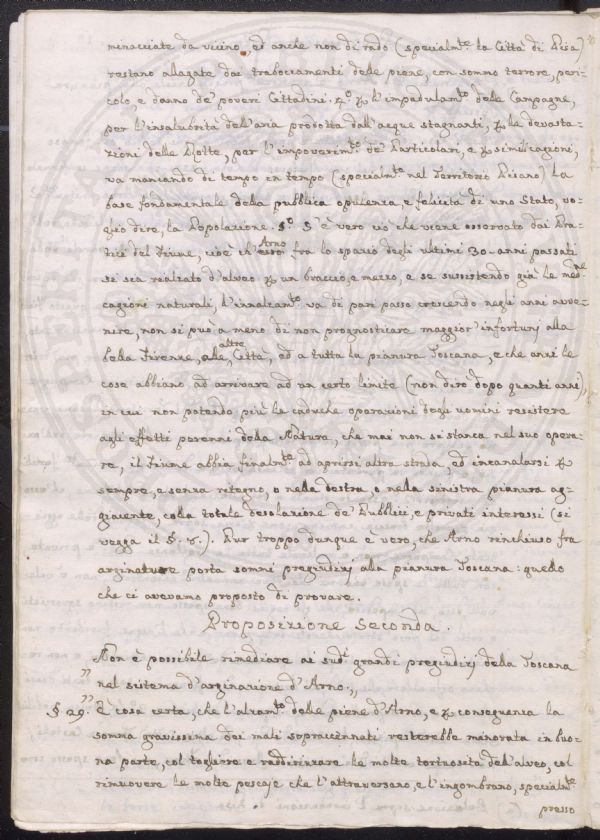 minacciate da vicino, ed anche non di rado (specialm.te la Città di Pisa)
restano allagate dai traboccamenti delle piene, con sommo terrore, peri-
colo, e danno de' poveri Cittadini. 4.o p l'impadulam.to delle Campagne,
per l'insalubrità dell'aria prodotta dall'acque stagnanti, p le devasta-
zioni delle Flotte, per l'impoverim.to de' Particolari, e p simili cagioni,
va mancando di tempo in tempo (specialm.te nel Territorio Pisano) la
base fondamentale della pubblica opulenza, e felicità di uno Stato, vo-
glio dire, la Popolazione. 5.o S'è vero ciò che viene osservato dai Pra-
tici del Fiume, cioè ch'esso Arno fra lo spazio degli ultimi 30. anni passati
si sia rialzato d'alveo p un braccio, e mezzo, e se sussistendo già le med.me
cagioni naturali, l'innalzam.to va di pari passo crescendo negli anni avve-
nire, non si può a meno di non prognosticare maggior' infortunj alla
bella Firenze, alle altre Città, ed a tutta la pianura Toscana, e che anzi le
cose abbiano ad arrivare ad un certo limite (non dirò dopo quanti anni),
in cui non potendo più le caduche operazioni degli uomini resistere
agli effetti perenni della Natura, che mai non si stanca nel suo opera-
re, il Fiume abbia finalm.te ad aprirsi altra strada, ed incanalarsi p
sempre, e senza ritegno, o nella destra, o nella sinistra pianura ag-
giacente, colla totale desolazione de' Pubblici, e privati interessi (si
vegga il §. 8.). Pur troppo dunque è vero, che Arno rinchiuso fra
arginature porta sommi pregiudizj alla pianura Toscana: quello
che ci avevamo proposto di provare.
Proposizione Seconda.
Non è possibile rimediare ai sud.i grandi pregiudizj della Toscana
„ nel sistema d'arginazione d'Arno „
§ 29. È cosa certa, che l'alzam.to delle piene d'Arno, e p conseguenza la
somma gravissima dei mali sopraccennati resterebbe minorata in buo-
na parte, col togliere e raddirizzare le molte tortuosità dell'alveo, col
rimuovere le molte pescaje che l'attraversano, e l'ingombrano, specialm.te
presso